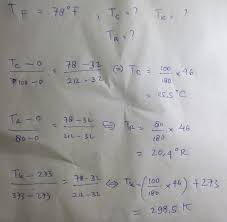 T_F = 78°F , T_C = ? T_K = ?
T_R = ?
(T_C - 0)/(100 - 0) = (78 - 32)/(212 - 32) ⇔ T_C = 100/180 * 46
= 25.5°C
(T_R - 0)/(80 - 0) = (78 - 32)/(212 - 32) ⇔ T_R = 80/180 * 46
= 20,4°R
(T_K - 273)/(373 - 273) = (78 - 32)/(212 - 32) ⇔ T_K = (100/180 * 46) + 273
= 298.5 K